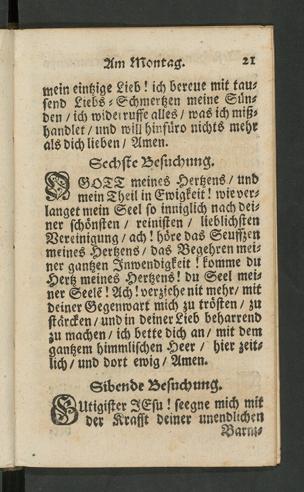 Am Montag. 21
mein eintzige Lieb! ich bereue mit tau-
send Liebs-Schmertzen meine Sün-
den / ich widerruffe alles / was ich miß-
handlet / und will hinfüro nichts mehr
als dich lieben / Amen.
Sechste Besuchung.
O GOTT meines Hertzens / und
mein Theil in Ewigkeit! wie ver-
langet mein Seel so inniglich nach dei-
ner schönsten / reinisten / lieblichsten
Vereinigung / ach! höre das Seufftzen
meines Hertzens / das Begehren mei-
ner gantzen Inwendigkeit! komme du
Hertz meines Hertzens! du Seel mei-
ner Seele! Ach! verziehe nit mehr / mit
deiner Gegenwart mich zu trösten / zu
stärcken / und in deiner Lieb beharrend
zu machen / ich bette dich an / mit dem
gantzem himmlischen Heer / hier zeit-
lich / und dort ewig / Amen.
Sibende Besuchung.
GUtigister JEsu! seegne mich mit
der Krafft deiner unendlichen
Barm-